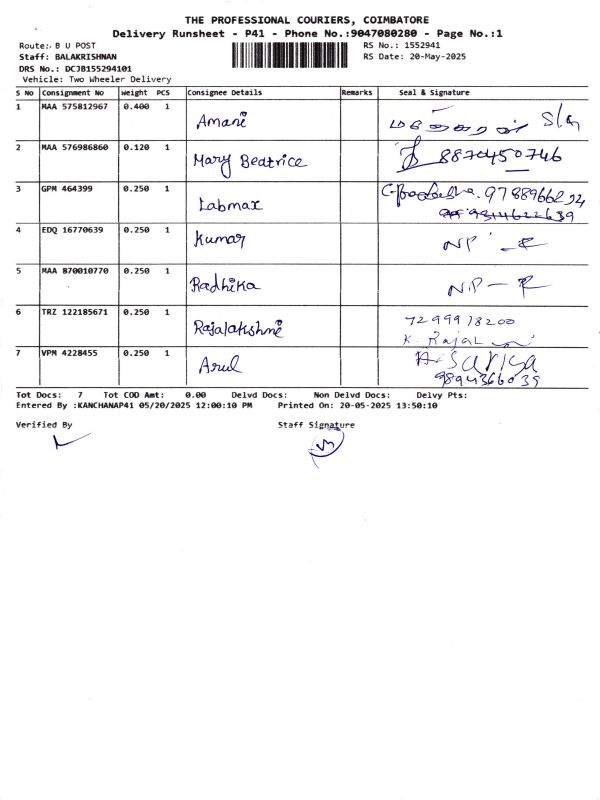 THE PROFESSIONAL COURIERS, COIMBATORE
Delivery Runsheet - P41 - Phone No.:9047080280 - Page No.:1
Route: B U POST RS No.: 1552941
Staff: BALAKRISHNAN RS Date: 20-May-2025
DRS No.: DCJB155294101
Vehicle: Two Wheeler Delivery
S No Consignment No Weight PCS Consignee Details Remarks Seal & Signature
1 MAA 575812967 0.400 1 Amani
2 MAA 576986860 0.120 1 Mary Beatrice 8870450746
3 GPM 464399 0.250 1 Labmax
4 EDQ 16770639 0.250 1 Kumar NP
5 MAA 870010770 0.250 1 Radhika NP
6 TRZ 122185671 0.250 1 Rajalakshmi 7299918200
K. Rajal
7 VPM 4228455 0.250 1 Arul A. Suriya
9894366039
Tot Docs: 7 Tot COD Amt: 0.00 Delvd Docs: Non Delvd Docs: Delvy Pts:
Entered By :KANCHANAP41 05/20/2025 12:00:10 PM Printed On: 20-05-2025 13:50:10
Verified By Staff Signature